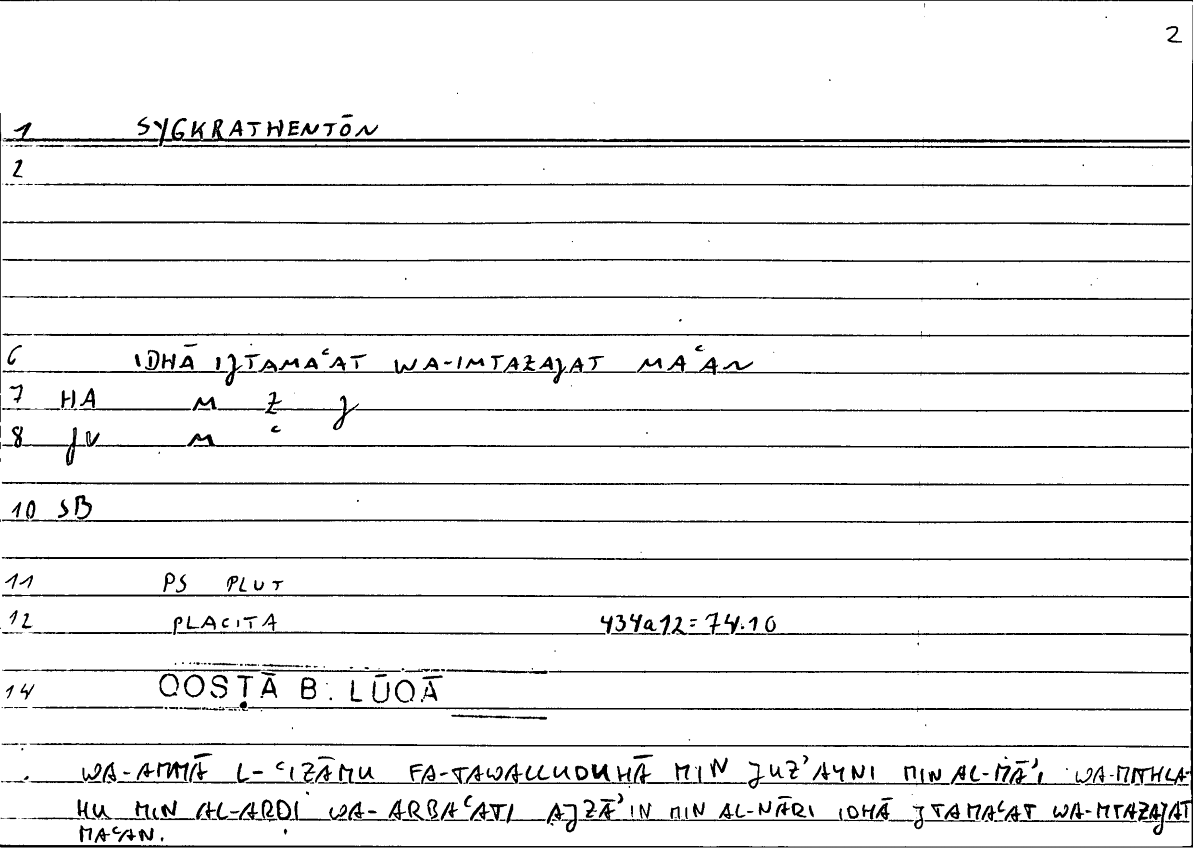 2
1 SYGKRATHENTŌN
2
6 IDHĀ IJTAMAʿAT WA-IMTAZAJAT MAʿAN
7 HA M Z J
8 JV M ʿ
10 SB
11 PS PLUT
12 PLACITA 434a12=74.10
14 QOSṬĀ B. LŪQĀ
WA-AMMĀ L-ʿIZĀMU FA-TAWALLUDUHĀ MIN JUZʾAYNI MIN AL-MĀʾI WA-MITHLA-
HU MIN AL-ARḌI WA-ARBAʿATI AJZĀʾIN MIN AL-NĀRI IDHĀ JTAMAʿAT WA-MTAZAJAT
MAʿAN.